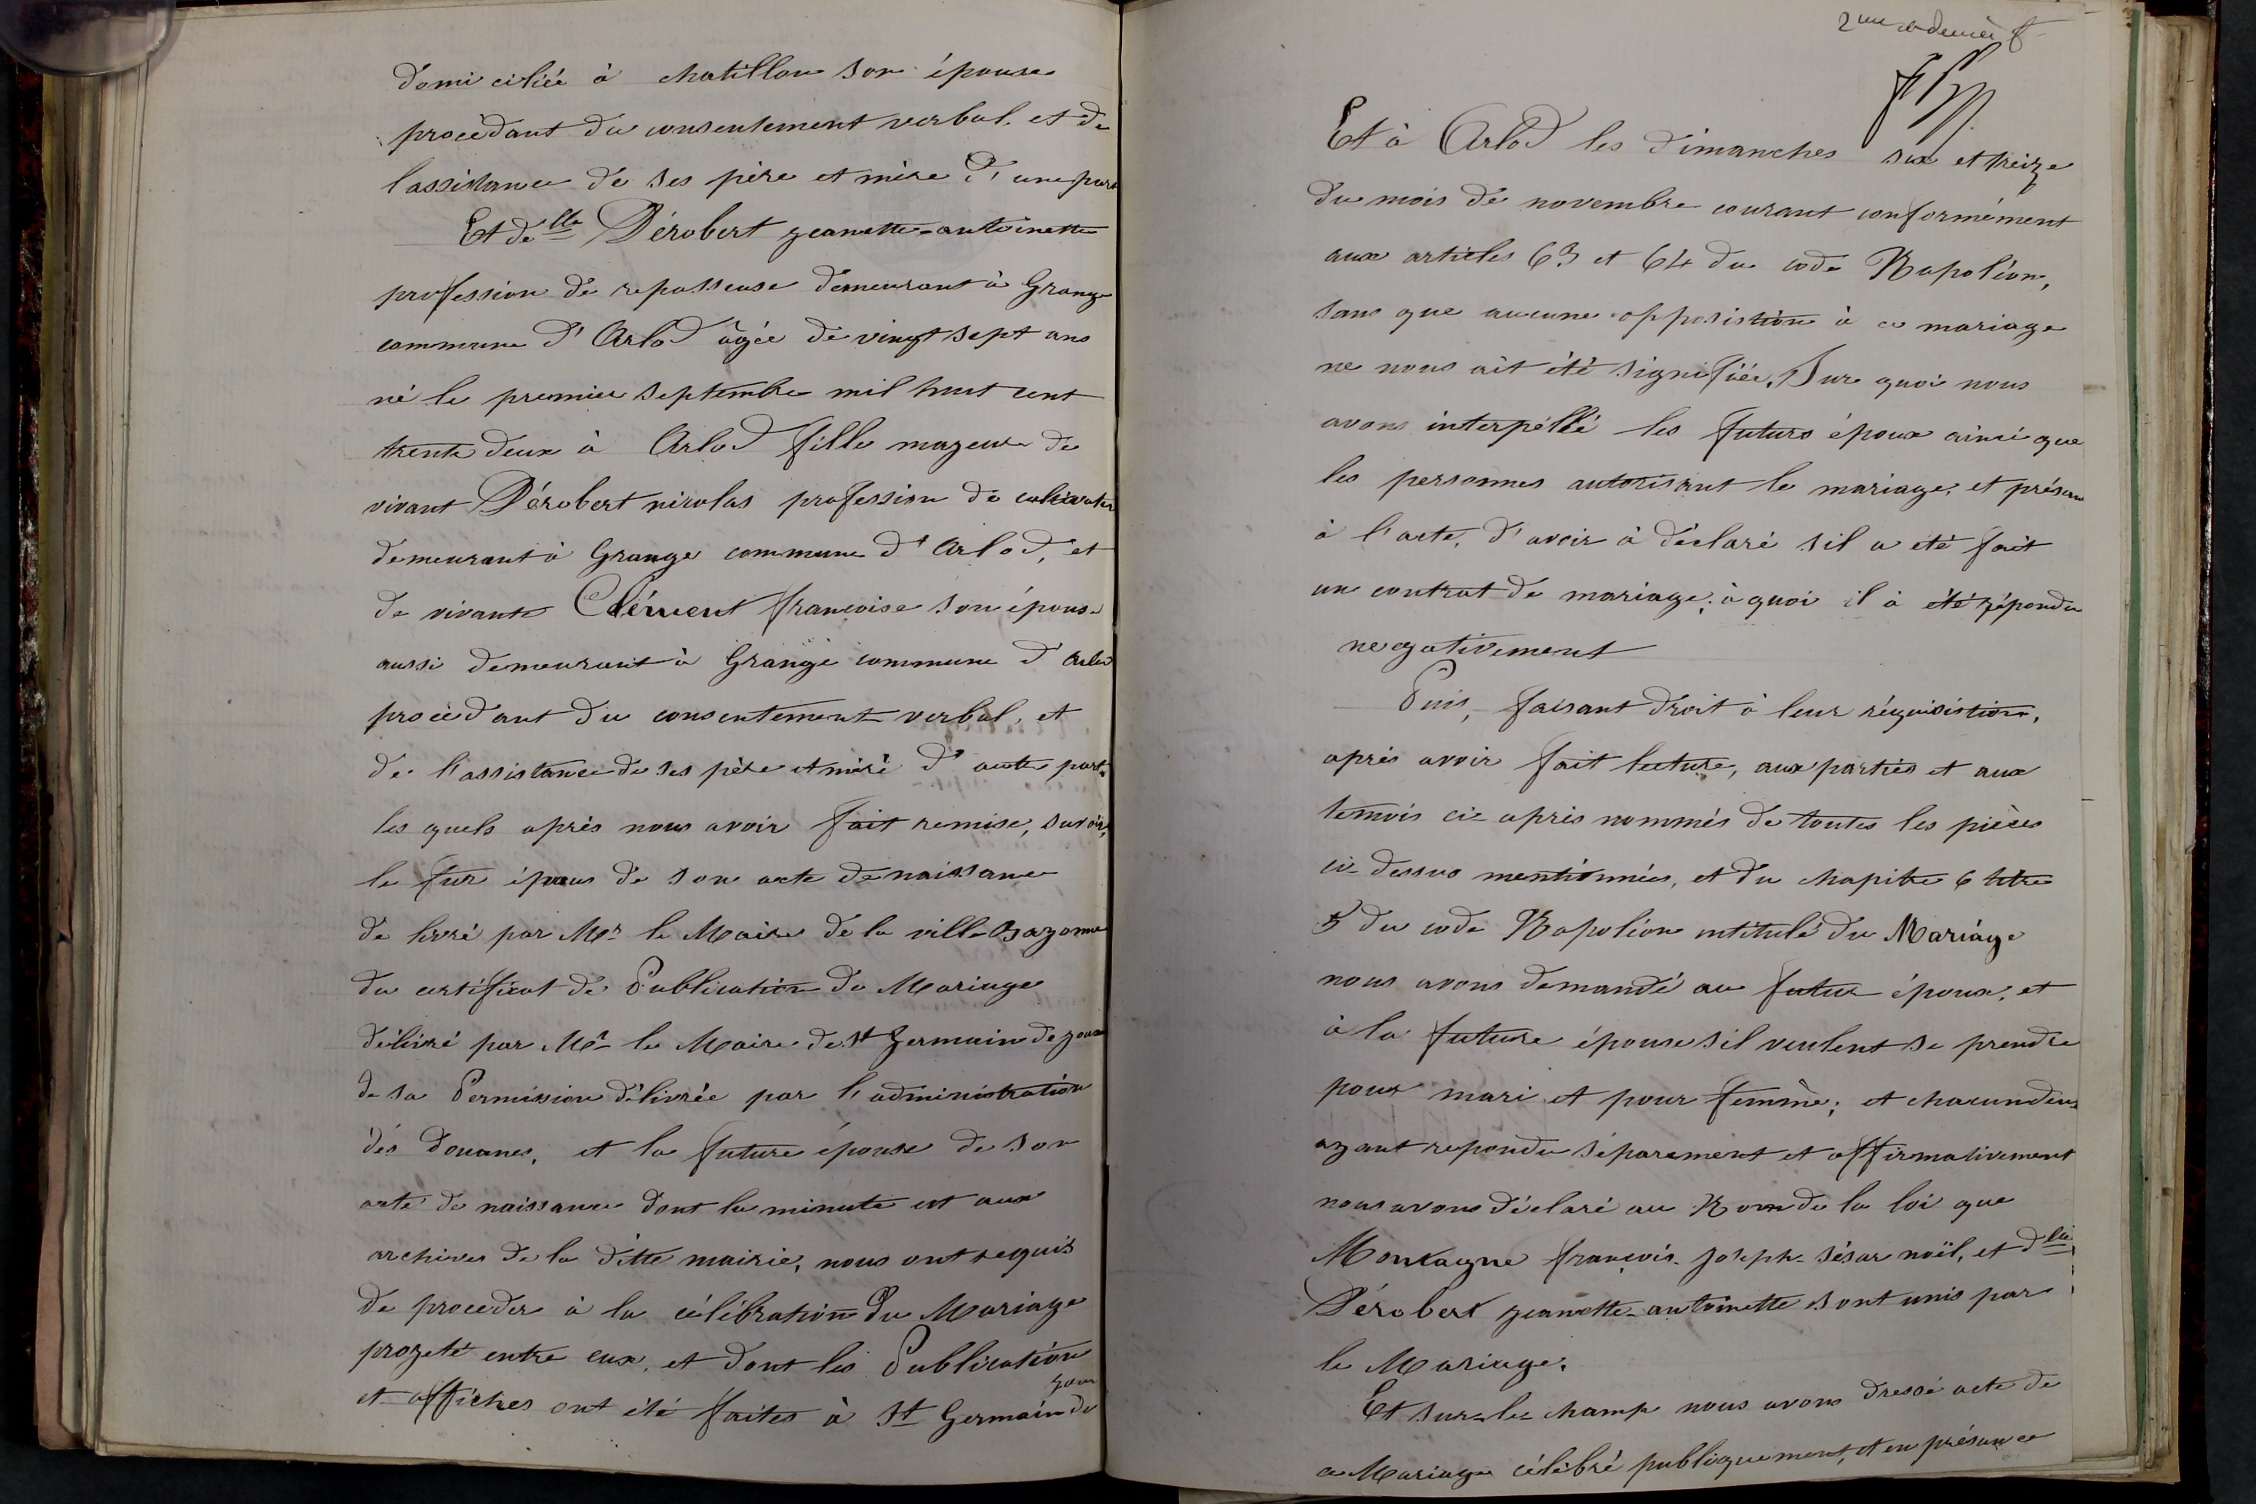 domi ciliée à chatillon son épouse
procèdant du consentement verbal. et de
l'assistance de ses père et mère d'une part
Et de lle Pérobert jeanette-antoinette
profession de repasseuse demeurant à Grange
commune d'Arlod âgée de vingt sept ans
né le premier septembre mil huit cent
trente deux à Arlod fille majeure de
vivant Pérobert nicolas profession de cultivateur
demeurant à Grange commune d'Arlod, et
de vivante Clément françoise son épouse
aussi demeurant à Grange commune d'Arlod
procèdant du consentement verbal, et
de l'assistance de ses père et mère d'autre part.
les quels après nous avoir fait remise, savoir,
le fur époux de son acte de naissance
de livré par Mr le Maire de la ville Bayonne
du certificat de Publication de Mariage
délivré par Mr le Maire de St Germain de joux
de sa Permission délivrée par l'administration
dés douanes, et la future épouse de son
acte de naissance dont la minute est aux
archives de la ditte mairie, nous ont requis
de proceder à la célébration du Mariage
projeté entre eux, et dont les Publication
et affiches ont été faites à St Germain de joux
2me et dernier f
Et à Arlod les dimanches six et treize
du mois de novembre courant conformément
aux articles 63 et 64 du code Napoléon,
sans que aucune opposistion à ce mariage
ne nous ait été signifiée, Sur quoi nous
avons interpéllé les futurs époux ainsi que
les personnes autorisant le mariage, et présan
à l'acte, d'avoir à déclaré s'il a été fait
un contrat de mariage, à quoi il à été répondu
negativement
Puis, faisant droit à leur réquisistion,
après avoir fait lecture, aux parties et aux
temois ci-après nommés de toutes les pièces
ci-dessus mentionnées, et du chapitre 6 titre
5 du code Napoléon intitulé du Mariage
nous avons demandé au futur époux, et
à la future épouse s'il veulent se prendre
pour mari et pour femme; et chacun deux
ayant repondu séparement et affirmativement
nous avons déclaré au Nom de la loi que
Montagne françois-joseph-sésar noël, et dlle
Pérobert jeanette-antoinette sont unis par
le Mariage.
Et sur-le-champ nous avons dressé acte de
ce Mariage célébré publiquement, et en présance